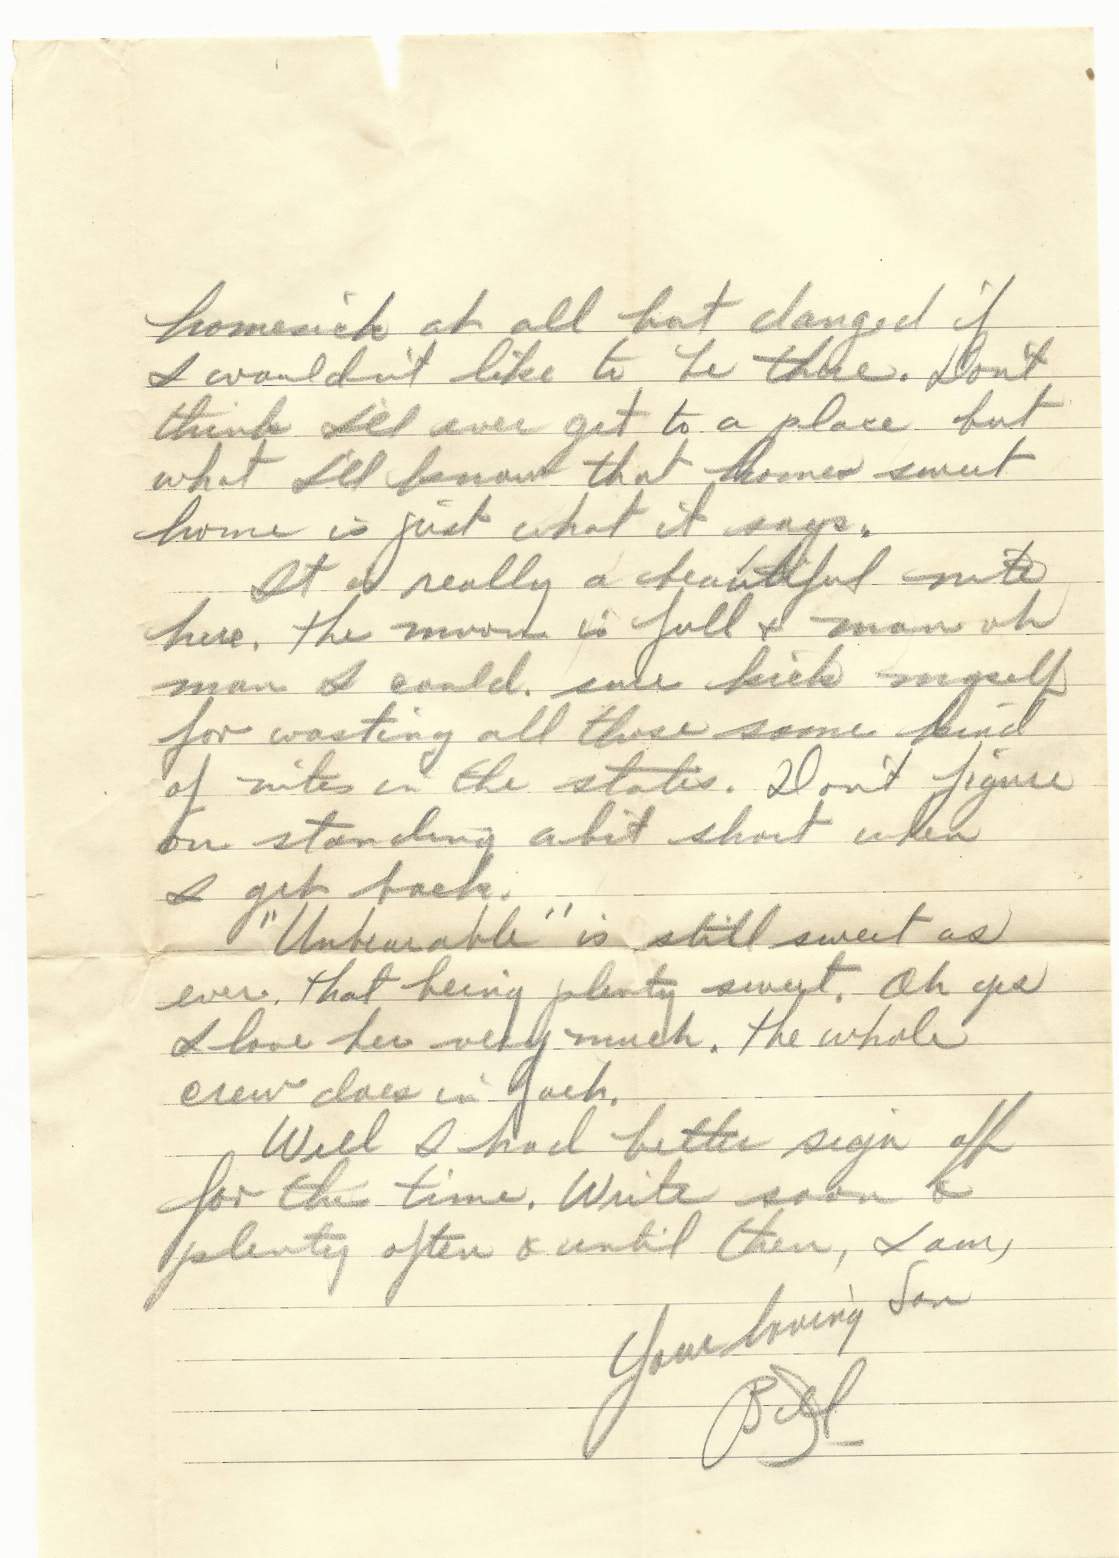 homesick at all but danged if
I wouldn't like to be there. Don't
think I'll ever get to a place but
what I'll know that home sweet
home is just what it says.
It is really a beautiful nite
here. The moon is full & man oh
man I could sure kick myself
for wasting all those same kind
of nites in the states. Don't figure
on standing a bit short when
I get back.
"Unbearable" is still sweet as
ever. That being plenty sweet. Oh yes
I love her very much. The whole
crew does in fact.
Well I had better sign off
for the time. Write soon &
plenty often & until then, I am,
Your loving Son
Bill